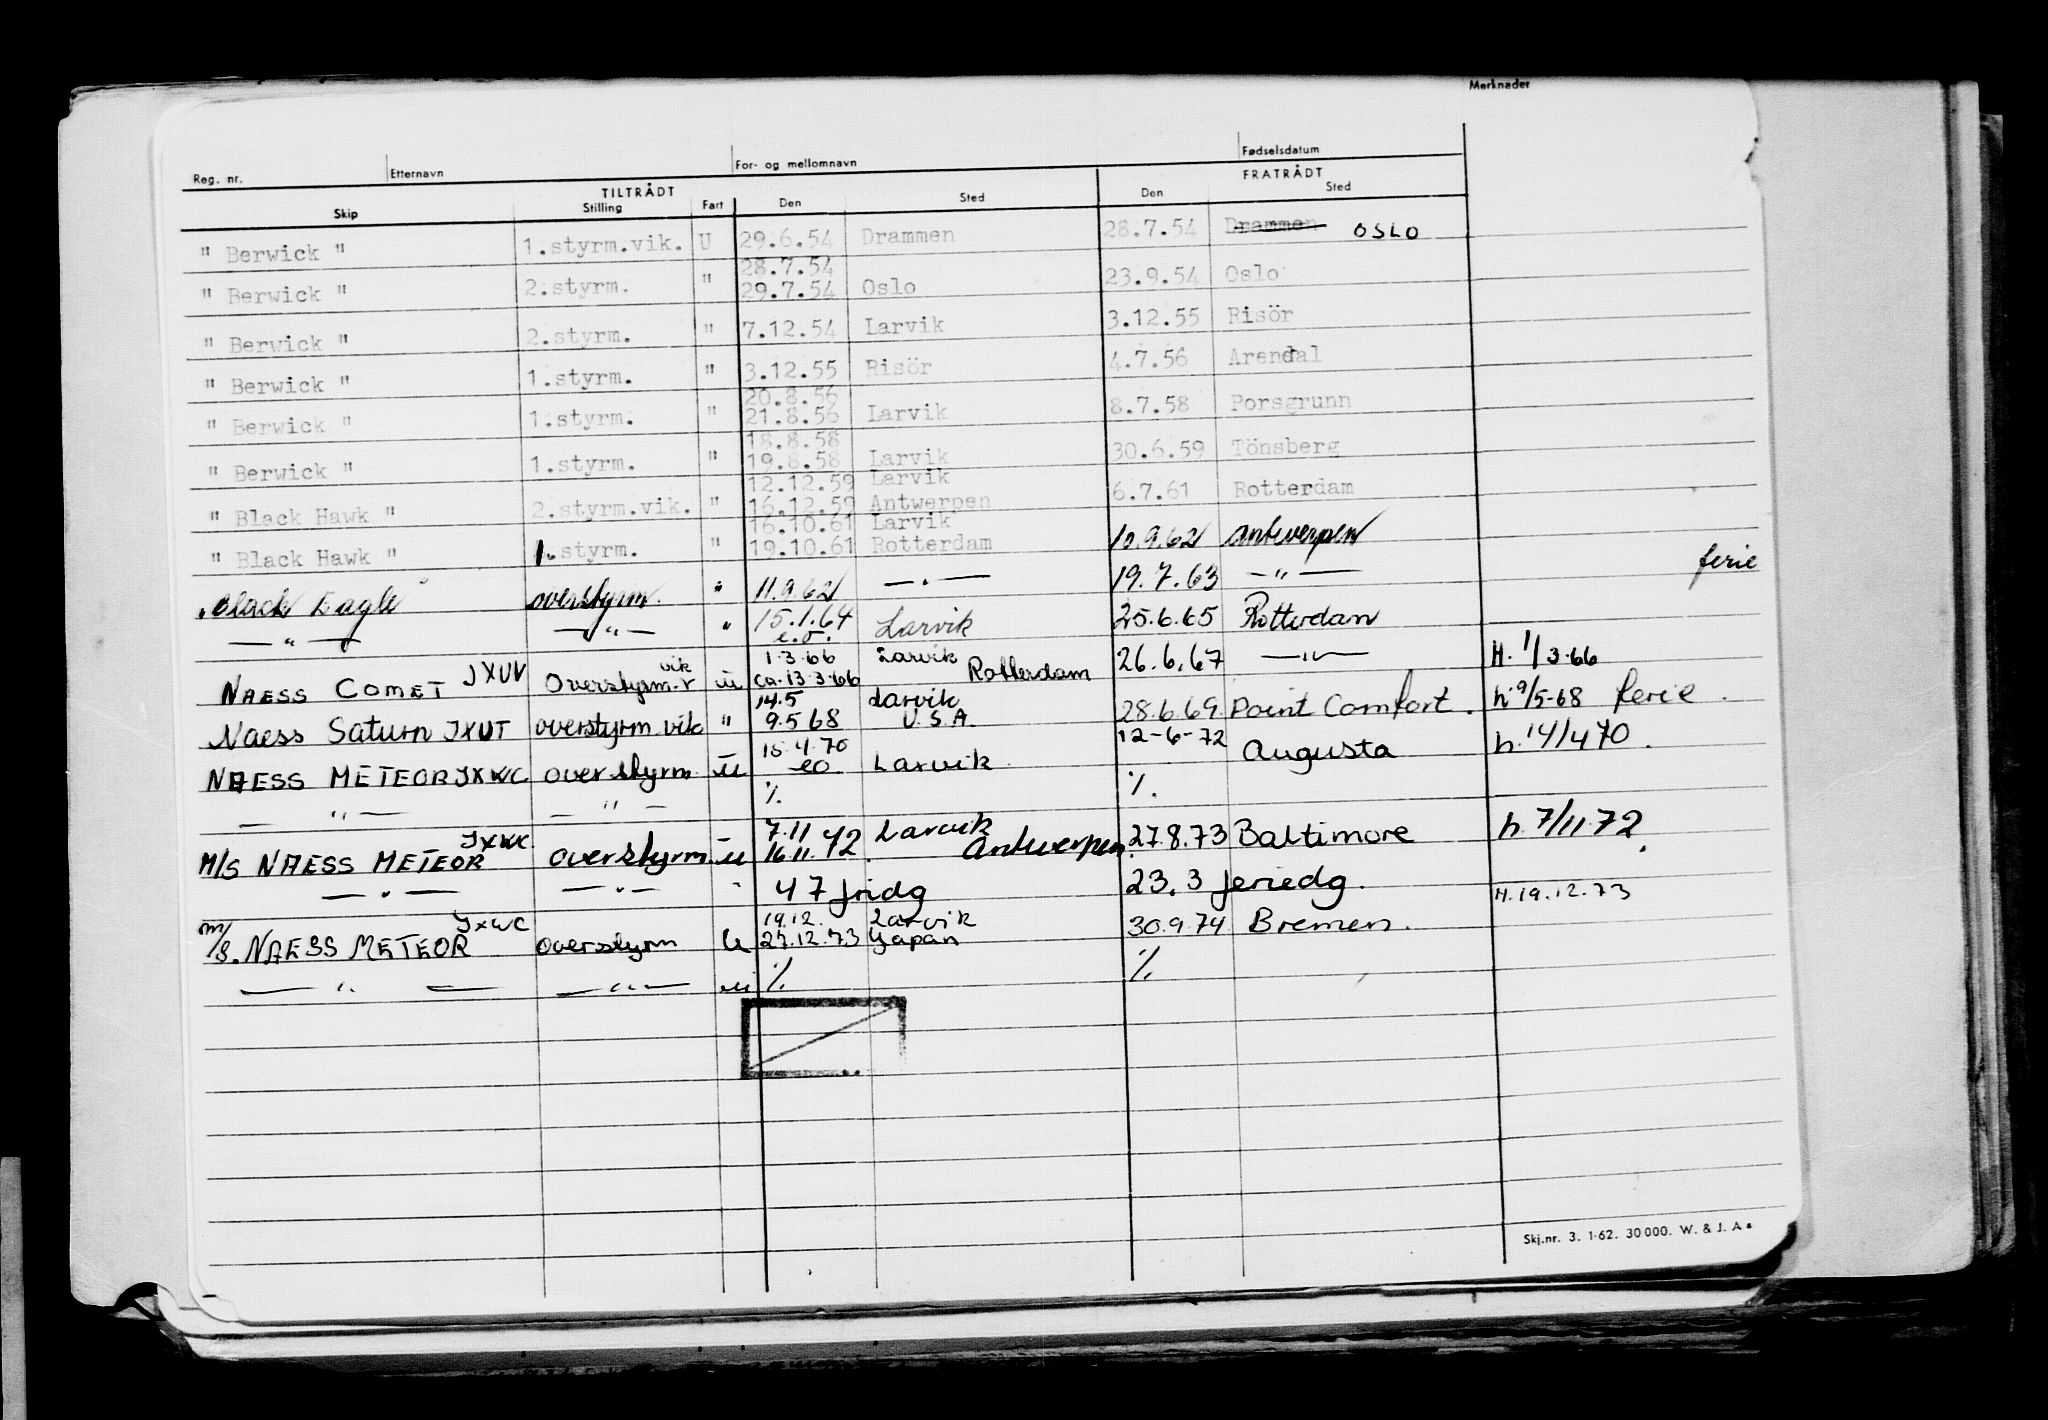 Merknader
Reg. nr. Etternavn For- og mellomnavn Fødselsdatum
TILTRÅDT FRATRÅDT
Skip Stilling Fart Den Sted Den Sted
" Berwick " 1.styrm.vik. U 29.6.54 Drammen 28.7.54 Drammen OSLO
28.7.54
" Berwick " 2.styrm. " 29.7.54 Oslo 23.9.54 Oslo
" Berwick " 2.styrm. " 7.12.54 Larvik 3.12.55 Risör
" Berwick " 1.styrm. " 3.12.55 Risör 4.7.56 Arendal
20.8.56
" Berwick " 1.styrm. " 21.8.56 Larvik 8.7.58 Porsgrunn
18.8.58
" Berwick " 1.styrm. " 19.8.58 Larvik 30.6.59 Tönsberg
12.12.59 Larvik
" Black Hawk " 2.styrm.vik. " 16.12.59 Antwerpen 6.7.61 Rotterdam
16.10.61 Larvik
" Black Hawk " 1. styrm. " 19.10.61 Rotterdam 10.9.62 Antwerpen
"Black Eagle" overstyrm. " 11.9.62 — " — 19.7.63 — " — ferie
— " — — " — " 15.1.64 Larvik 25.6.65 Rotterdam
e.o.
1.3.66 Larvik
NAESS COMET JXUV Overstyrm.vik u ca.13.3.66 Rotterdam 26.6.67 — " — H. 1/3.66
14.5 Larvik
Naess Saturn JXUT overstyrm vik " 9.5 68 U.S.A. 28.6.69 Point Comfort. h 9/5-68 ferie.
NAESS METEOR JXWC overstyrm u 15.4.70 eo Larvik 12-6-72 Augusta h.14/4 70.
— " — — " — %. %.
7.11 Larvik
M/S NAESS METEOR JXWC overstyrm. u 16.11.72 Antwerpen 27.8.73 Baltimore h. 7/11.72.
— " — — " — " 47 fridg 23.3 feriedg.
19.12. Larvik H.19.12.73
m/s. NAESS METEOR JXWC overstyrm u 27.12.73 Japan 30.9.74 Bremen.
— " — — " — u %. %.
Skj.nr. 3. 1-62. 30000. W. & J. A.